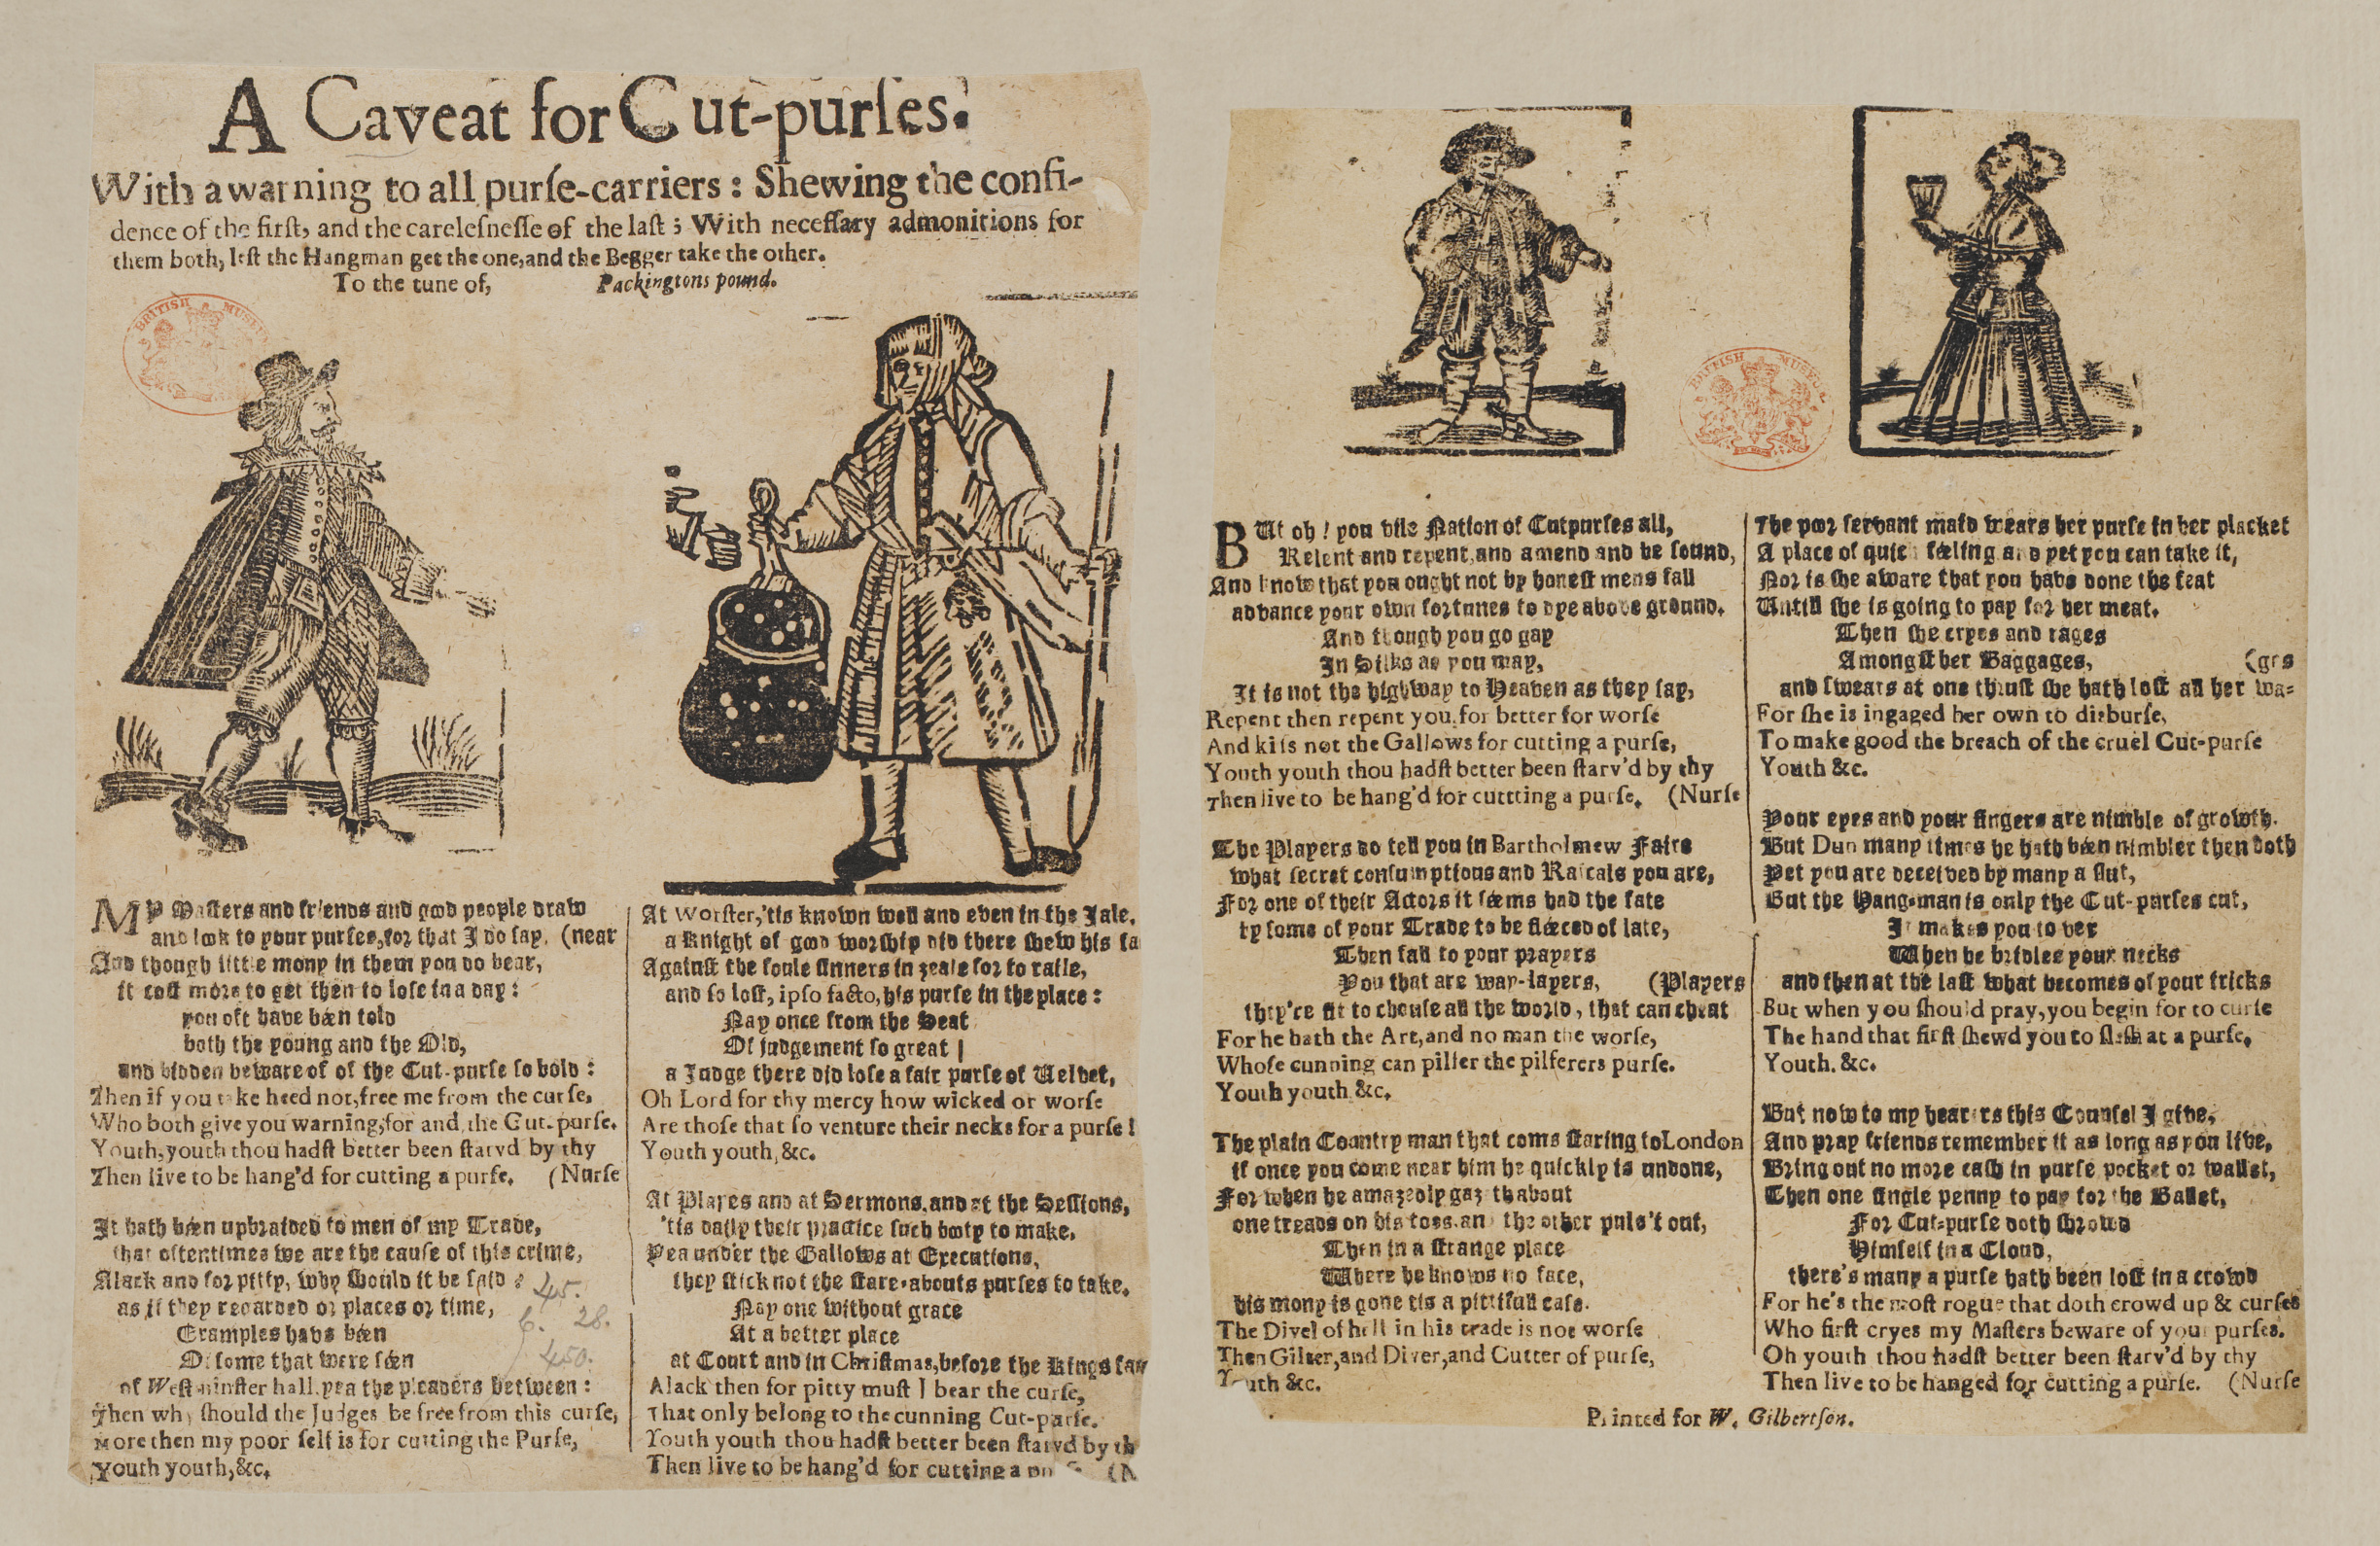 A Caveat for Cut-purſes.
With a warning to all purſe-carriers : Shewing the confi-
dence of the firſt, and the careleſneſſe of the laſt ; With neceſſary admonitions for
them both, leſt the Hangman get the one,and the Begger take the other.
To the tune of, Packingtons pound.
BRITISH MUSEUM
MY Maſters and friends and good people draw
and look to your purſes,for that I do ſay, (near
And though little mony in them you do bear,
it coſt more to get then to loſe in a day :
you oft have been told
both the young and the Old,
and bidden beware of of the Cut-purſe ſo bold :
Then if you take heed not,free me from the curſe,
Who both give you warning,for and the Cut-purſe.
Youth,youth thou hadſt better been ſtarvd by thy
Then live to be hang'd for cutting a purſe. (Nurſe
It hath been upbraided to men of my Trade,
that oftentimes we are the cauſe of this crime,
Alack and for pitty, why ſhould it be ſaid :
as if they regarded or places or time,
Examples have been
Of ſome that were ſeen
of Weſtminſter hall,yea the pleaders between :
Then why ſhould the Judges be free from this curſe,
More then my poor ſelf is for cutting the Purſe,
Youth youth,&c.
45.
6. 28.
450.
At Worſter,'tis known well and even in the Jale,
a Knight of good worſhip did there ſhew his fa
Againſt the foule ſinners in zeale for to raile,
and ſo loſt, ipſo facto,his purſe in the place :
Nay once from the Seat
Of judgement ſo great
a Judge there did loſe a fair purſe of Velvet,
Oh Lord for thy mercy how wicked or worſe
Are thoſe that ſo venture their necks for a purſe !
Youth youth,&c.
At Playes and at Sermons,and at the Seſſions,
'tis daily their practice ſuch booty to make,
Yea under the Gallows at Executions,
they ſtick not the ſtare-abouts purſes to take.
Nay one without grace
At a better place
at Court and in Chriſtmas,before the Kings fa
Alack then for pitty muſt I bear the curſe,
That only belong to the cunning Cut-purſe.
Youth youth thou hadſt better been ſtarvd by th
Then live to be hang'd for cutting a pu (N
BRITISH MUSEUM
BUt oh ! you vile Nation of Cutpurſes all,
Relent and repent,and amend and be ſound,
And know that you ought not by honeſt mens fall
advance your own fortunes to dye above ground,
And though you go gay
In Silks as you may,
It is not the highway to Heaven as they ſay,
Repent then repent you,for better for worſe
And kiſs not the Gallows for cutting a purſe,
Youth youth thou hadſt better been ſtarv'd by thy
Then live to be hang'd for cuttting a purſe. (Nurſe
The Players do tell you in Bartholmew Faire
what ſecret conſumptions and Raſcals you are,
For one of their Actors it ſeems had the fate
by ſome of your Trade to be fleeced of late,
Then fall to your prayers
You that are way-layers, (Players
they're fit to chouſe all the world , that can cheat
For he hath the Art,and no man the worſe,
Whoſe cunning can pilfer the pilferers purſe.
Youth youth &c.
The plain Country man that coms ſtaring to London
if once you come near him he quickly is undone,
For when he amazedly gazeth about
one treads on his toes,and the other puls't out,
Then in a ſtrange place
Where he knows no face,
his mony is gone tis a pittifull caſe.
The Divel of hell in his trade is not worſe
Then Gilter,and Diver,and Cutter of purſe,
Youth &c.
The poor ſervant maid wears her purſe in her placket
A place of quick feeling and yet you can take it,
Nor is ſhe aware that you have done the feat
Untill ſhe is going to pay for her meat.
Then ſhe cryes and rages
Amongſt her Baggages, (ges
and ſwears at one thruſt ſhe hath loſt all her wa-
For ſhe is ingaged her own to diſburſe,
To make good the breach of the cruel Cut-purſe
Youth &c.
Your eyes and your fingers are nimble of growth.
But Dun many times he hath been nimbler then both
Yet you are deceived by many a ſlut,
But the Hang-man is only the Cut-purſes cut,
It makes you to vex
When he bridles your necks
and then at the laſt what becomes of your tricks
But when you ſhould pray,you begin for to curſe
The hand that firſt ſhewd you to ſlaſh at a purſe,
Youth. &c.
But now to my hearers this Counſel I give,
And pray friends remember it as long as you live,
Bring out no more caſh in purſe pocket or wallet,
Then one ſingle penny to pay for the Ballet,
For Cut-purſe doth ſhrowd
Himſelf in a Cloud,
there's many a purſe hath been loſt in a crowd
For he's the moſt rogue that doth crowd up & curſes
Who firſt cryes my Maſters beware of your purſes.
Oh youth thou hadſt better been ſtarv'd by thy
Then live to be hanged for cutting a purſe. (Nurſe
Printed for W. Gilbertſon.